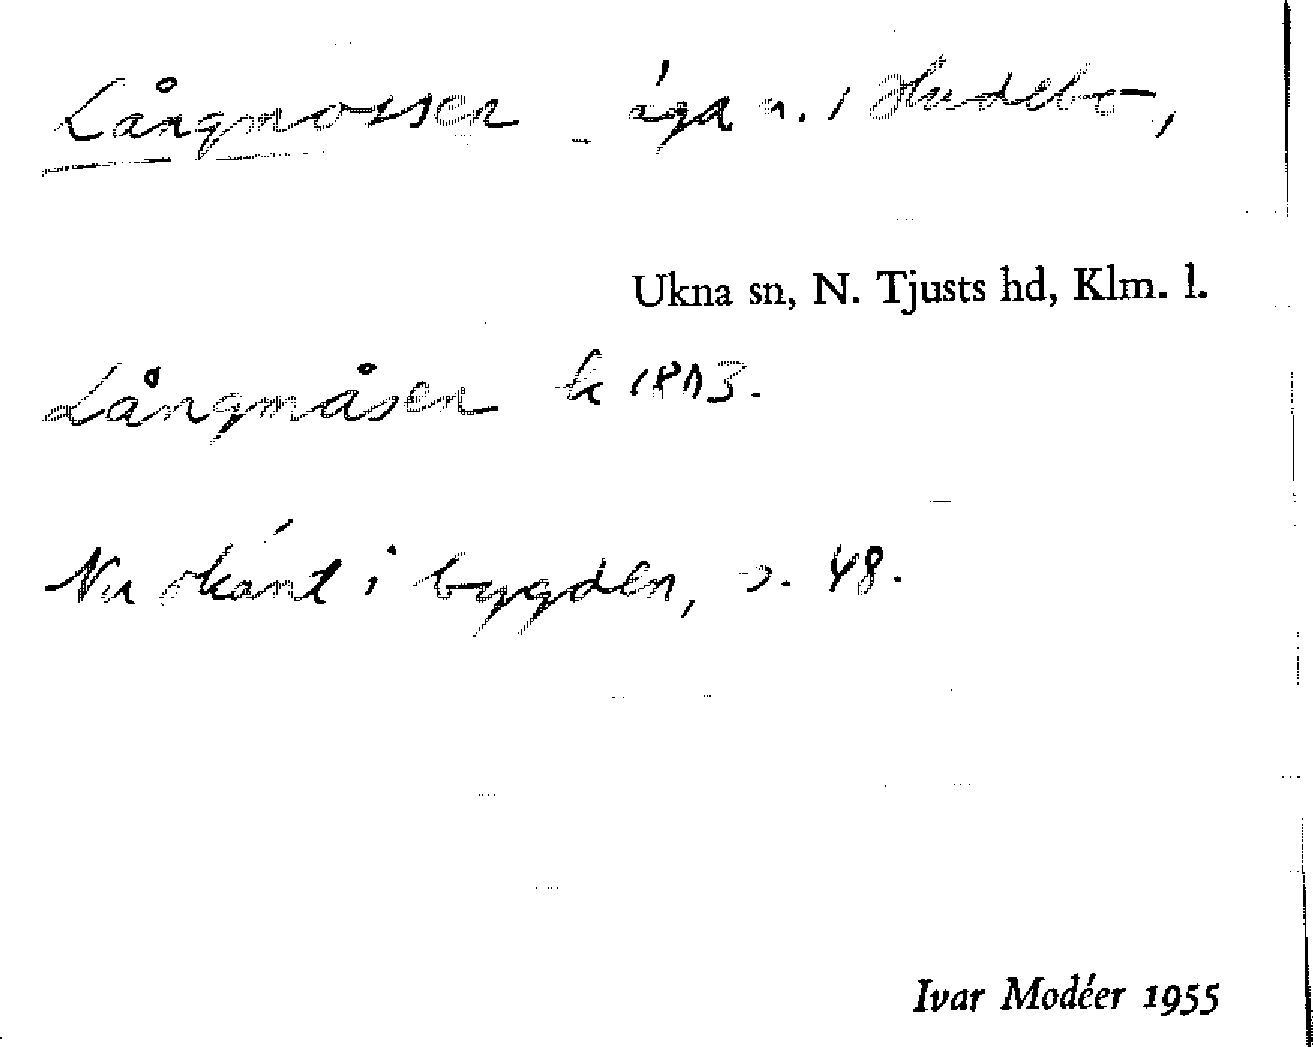 Långmossen äga n. i Hudebo,
Ukna sn, N. Tjusts hd, Klm. l.
Långmåsen k 1813.
Nu okänt i bygden, s. 48.
Ivar Modéer 1955